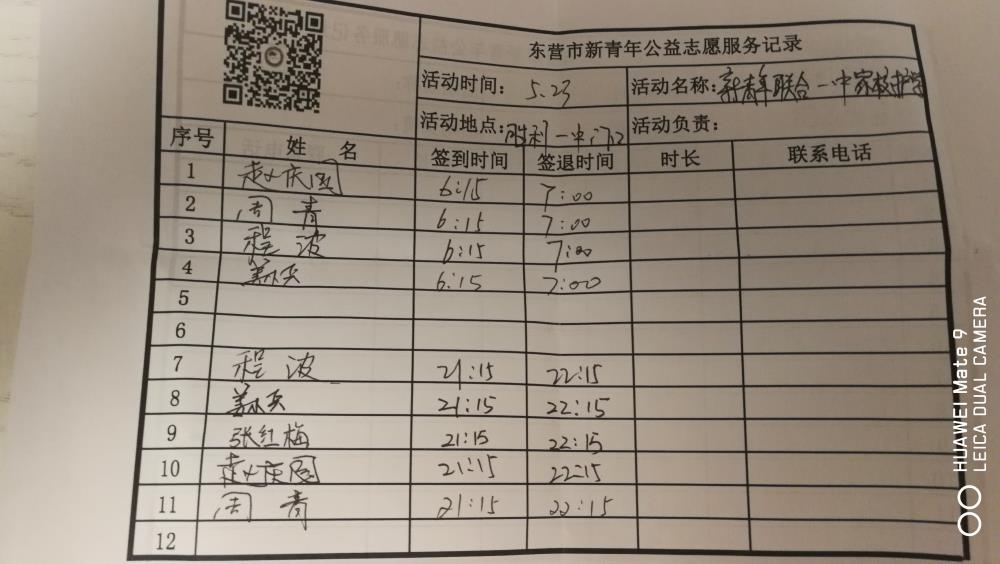 东营市新青年公益志愿服务记录
活动时间： 5.23 活动名称：新青年联合一中家校护学
活动地点：胜利一中门口 活动负责：
序号 姓 名 签到时间 签退时间 时长 联系电话
1 赵庆国 6:15 7:00
2 周青 6:15 7:00
3 程波 6:15 7:00
4 6:15 7:00
5
6
7 程波 21:15 22:15
8 21:15 22:15
9 张红梅 21:15 22:15
10 赵庆国 21:15 22:15
11 周青 21:15 22:15
12
HUAWEI Mate 9
LEICA DUAL CAMERA